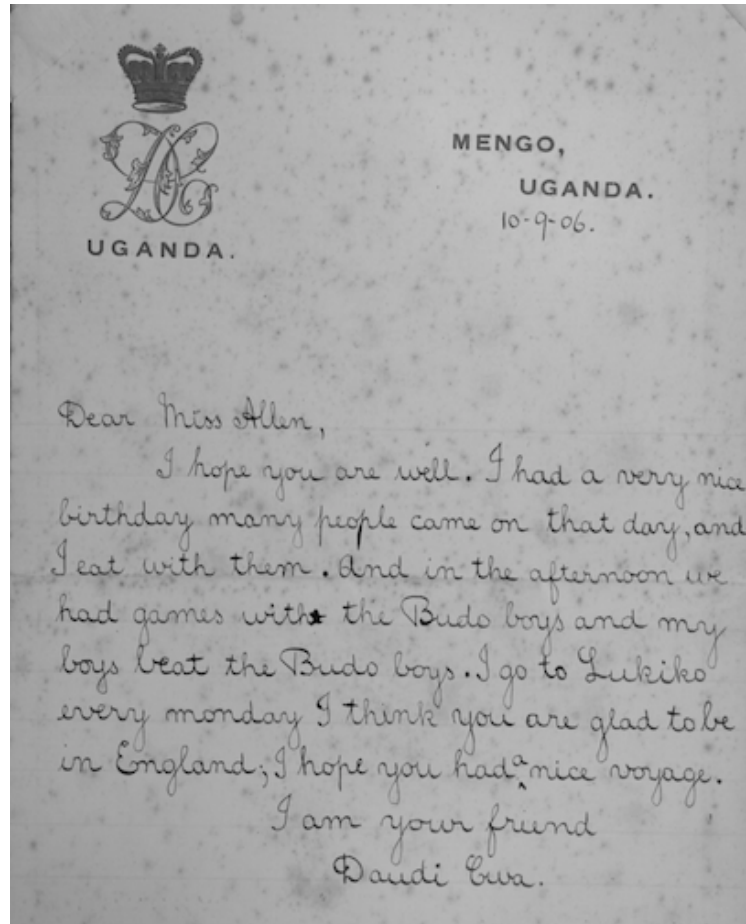 MENGO,
UGANDA.
10-9-06.
UGANDA.
Dear Miss Allen,
I hope you are well. I had a very nice
birthday many people came on that day, and
I eat with them. And in the afternoon we
had games with the Budo boys and my
boys beat the Budo boys. I go to Lukiko
every monday I think you are glad to be
in England; I hope you had a nice voyage.
I am your friend
Daudi Cwa.